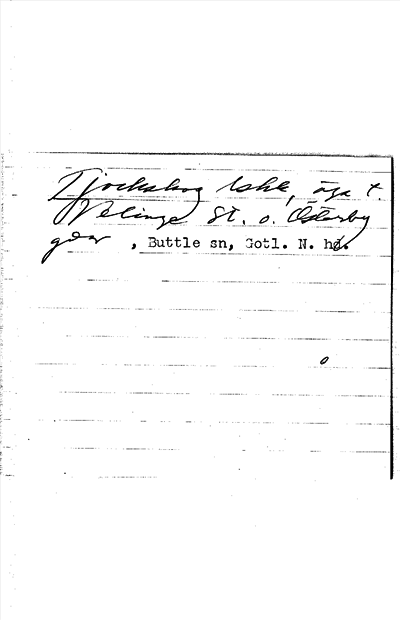 Tjockskog lskr, äga t.
Velinge St. o. Österby
gdar , Buttle sn, Gotl. N. hd.